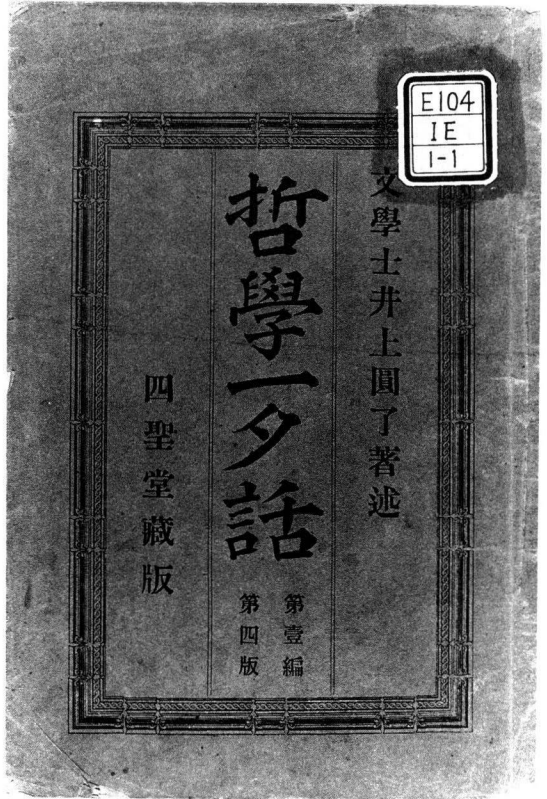 E104
IE
1-1
文學士井上圓了著述
哲學一夕話
第壹編
第四版
四聖堂藏版